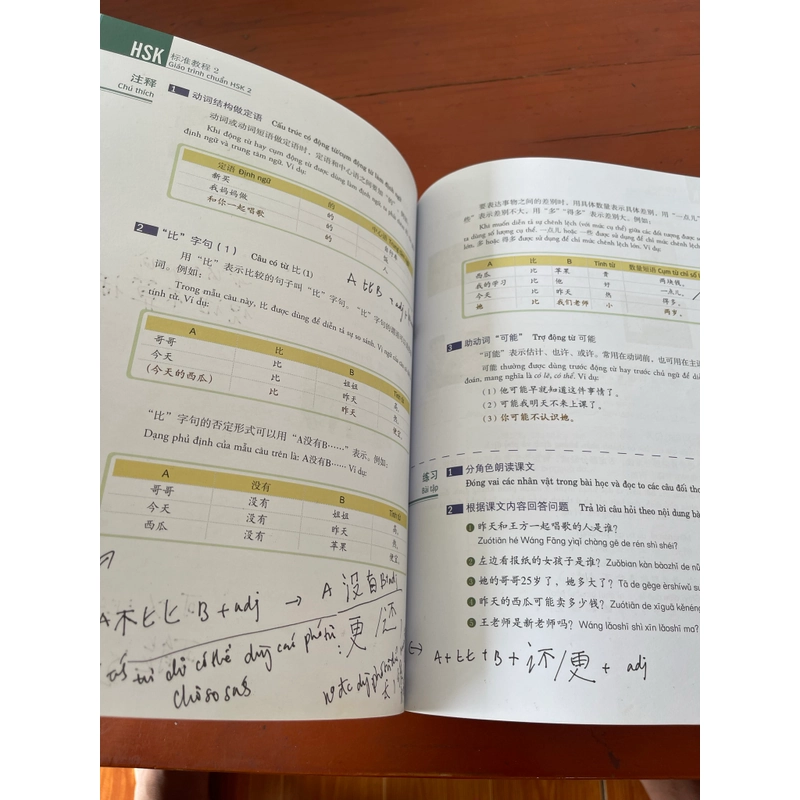 HSK 标准教程 2
Giáo trình chuẩn HSK 2
注释
Chú thích
1 动词结构做定语 Cấu trúc có động từ/cụm động từ làm định ngữ
动词或动词短语做定语时，定语和中心语之间要加“的”
Khi động từ hay cụm động từ được dùng làm định ngữ,
định ngữ và trung tâm ngữ. Ví dụ:
定语 Định ngữ 的 中心语
新买 的
我妈妈做 的
和你一起唱歌 的 人
2 “比”字句（1） Câu có từ 比 (1)
A 比 B + adj
用“比”表示比较的句子叫“比”字句。“比”字句的
词。例如：
Trong mẫu câu này, 比 được dùng để diễn tả sự so sánh. Vị ngữ của
tính từ. Ví dụ:
A 比 B Tính từ
哥哥 比 姐姐 高。
今天 比 昨天 热。
（今天的西瓜） 比 昨天 便宜。
“比”字句的否定形式可以用“A没有B……”表示。例如：
Dạng phủ định của mẫu câu trên là: A没有B…… Ví dụ:
A 没有 B Tính từ
哥哥 没有 姐姐 高。
今天 没有 昨天 热。
西瓜 没有 苹果 便宜。
A 不比 B + adj → A 没有 B adj
更 / 还
要表达事物之间的差别时，用具体数量表示具体差别，用“一点儿”
些”表示差别不大。用“多”“得多”表示差别大。例如：
Khi muốn diễn tả sự chênh lệch (với mức cụ thể) giữa các đối tượng được
ta dùng số lượng cụ thể. 一点儿 hoặc 一些 được sử dụng để chỉ mức chênh lệch
lớn, 多 hay 得多 được sử dụng để chỉ mức chênh lệch lớn. Ví dụ:
A 比 B Tính từ 数量短语 Cụm từ chỉ số
西瓜 比 苹果 贵 两块钱。
我的学习 比 他 好 一点儿。
今天 比 昨天 热 得多。
她 比 我们老师 小 两岁。
3 助动词“可能” Trợ động từ 可能
“可能”表示估计、也许、或许。常用在动词前，也可用在主
可能 thường được dùng trước động từ hay trước chủ ngữ để
đoán, mang nghĩa là có lẽ, có thể. Ví dụ:
（1）他可能早就知道这件事情了。
（2）可能我明天不来上课了。
（3）你可能不认识她。
练习
Bài tập
1 分角色朗读课文
Đóng vai các nhân vật trong bài học và đọc to các câu đối
2 根据课文内容回答问题 Trả lời câu hỏi theo nội dung
1 昨天和王方一起唱歌的人是谁？
Zuótiān hé Wáng Fāng yìqǐ chàng gē de rén shì shéi?
2 左边看报纸的女孩子是谁？ Zuǒbian kàn bàozhǐ de
3 她的哥哥25岁了，她多大了？ Tā de gēge èrshíwǔ
4 昨天的西瓜可能卖多少钱？ Zuótiān de xīguā kěnéng
5 王老师是新老师吗？ Wáng lǎoshī shì xīn lǎoshī ma?
A + 比 + B + 还/更 + adj